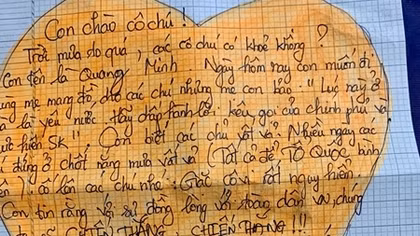 Con chào cô chú !
Trời mưa to quá, các cô chú có khoẻ không ?
Con tên là Quang Minh Ngày hôm nay con muốn đi
ùng mẹ mang đồ cho các chú nhưng mẹ con bảo : " Lúc này ở
à là yêu nước Hãy đáp lời kêu gọi của chính phủ và
ực hiện 5K " . Con biết các chú vất vả. Nhiều ngày các
ú đứng ở chốt rằng mưa vất vả (Tất cả để TỔ QUỐC bình
) cố lên các chú nhé. Giặc cô vi rất nguy hiểm.
Con tin rằng với sự đồng lòng với toàn dân VN, chúng
CHIẾN THẮNG, CHIẾN THẮNG !!!